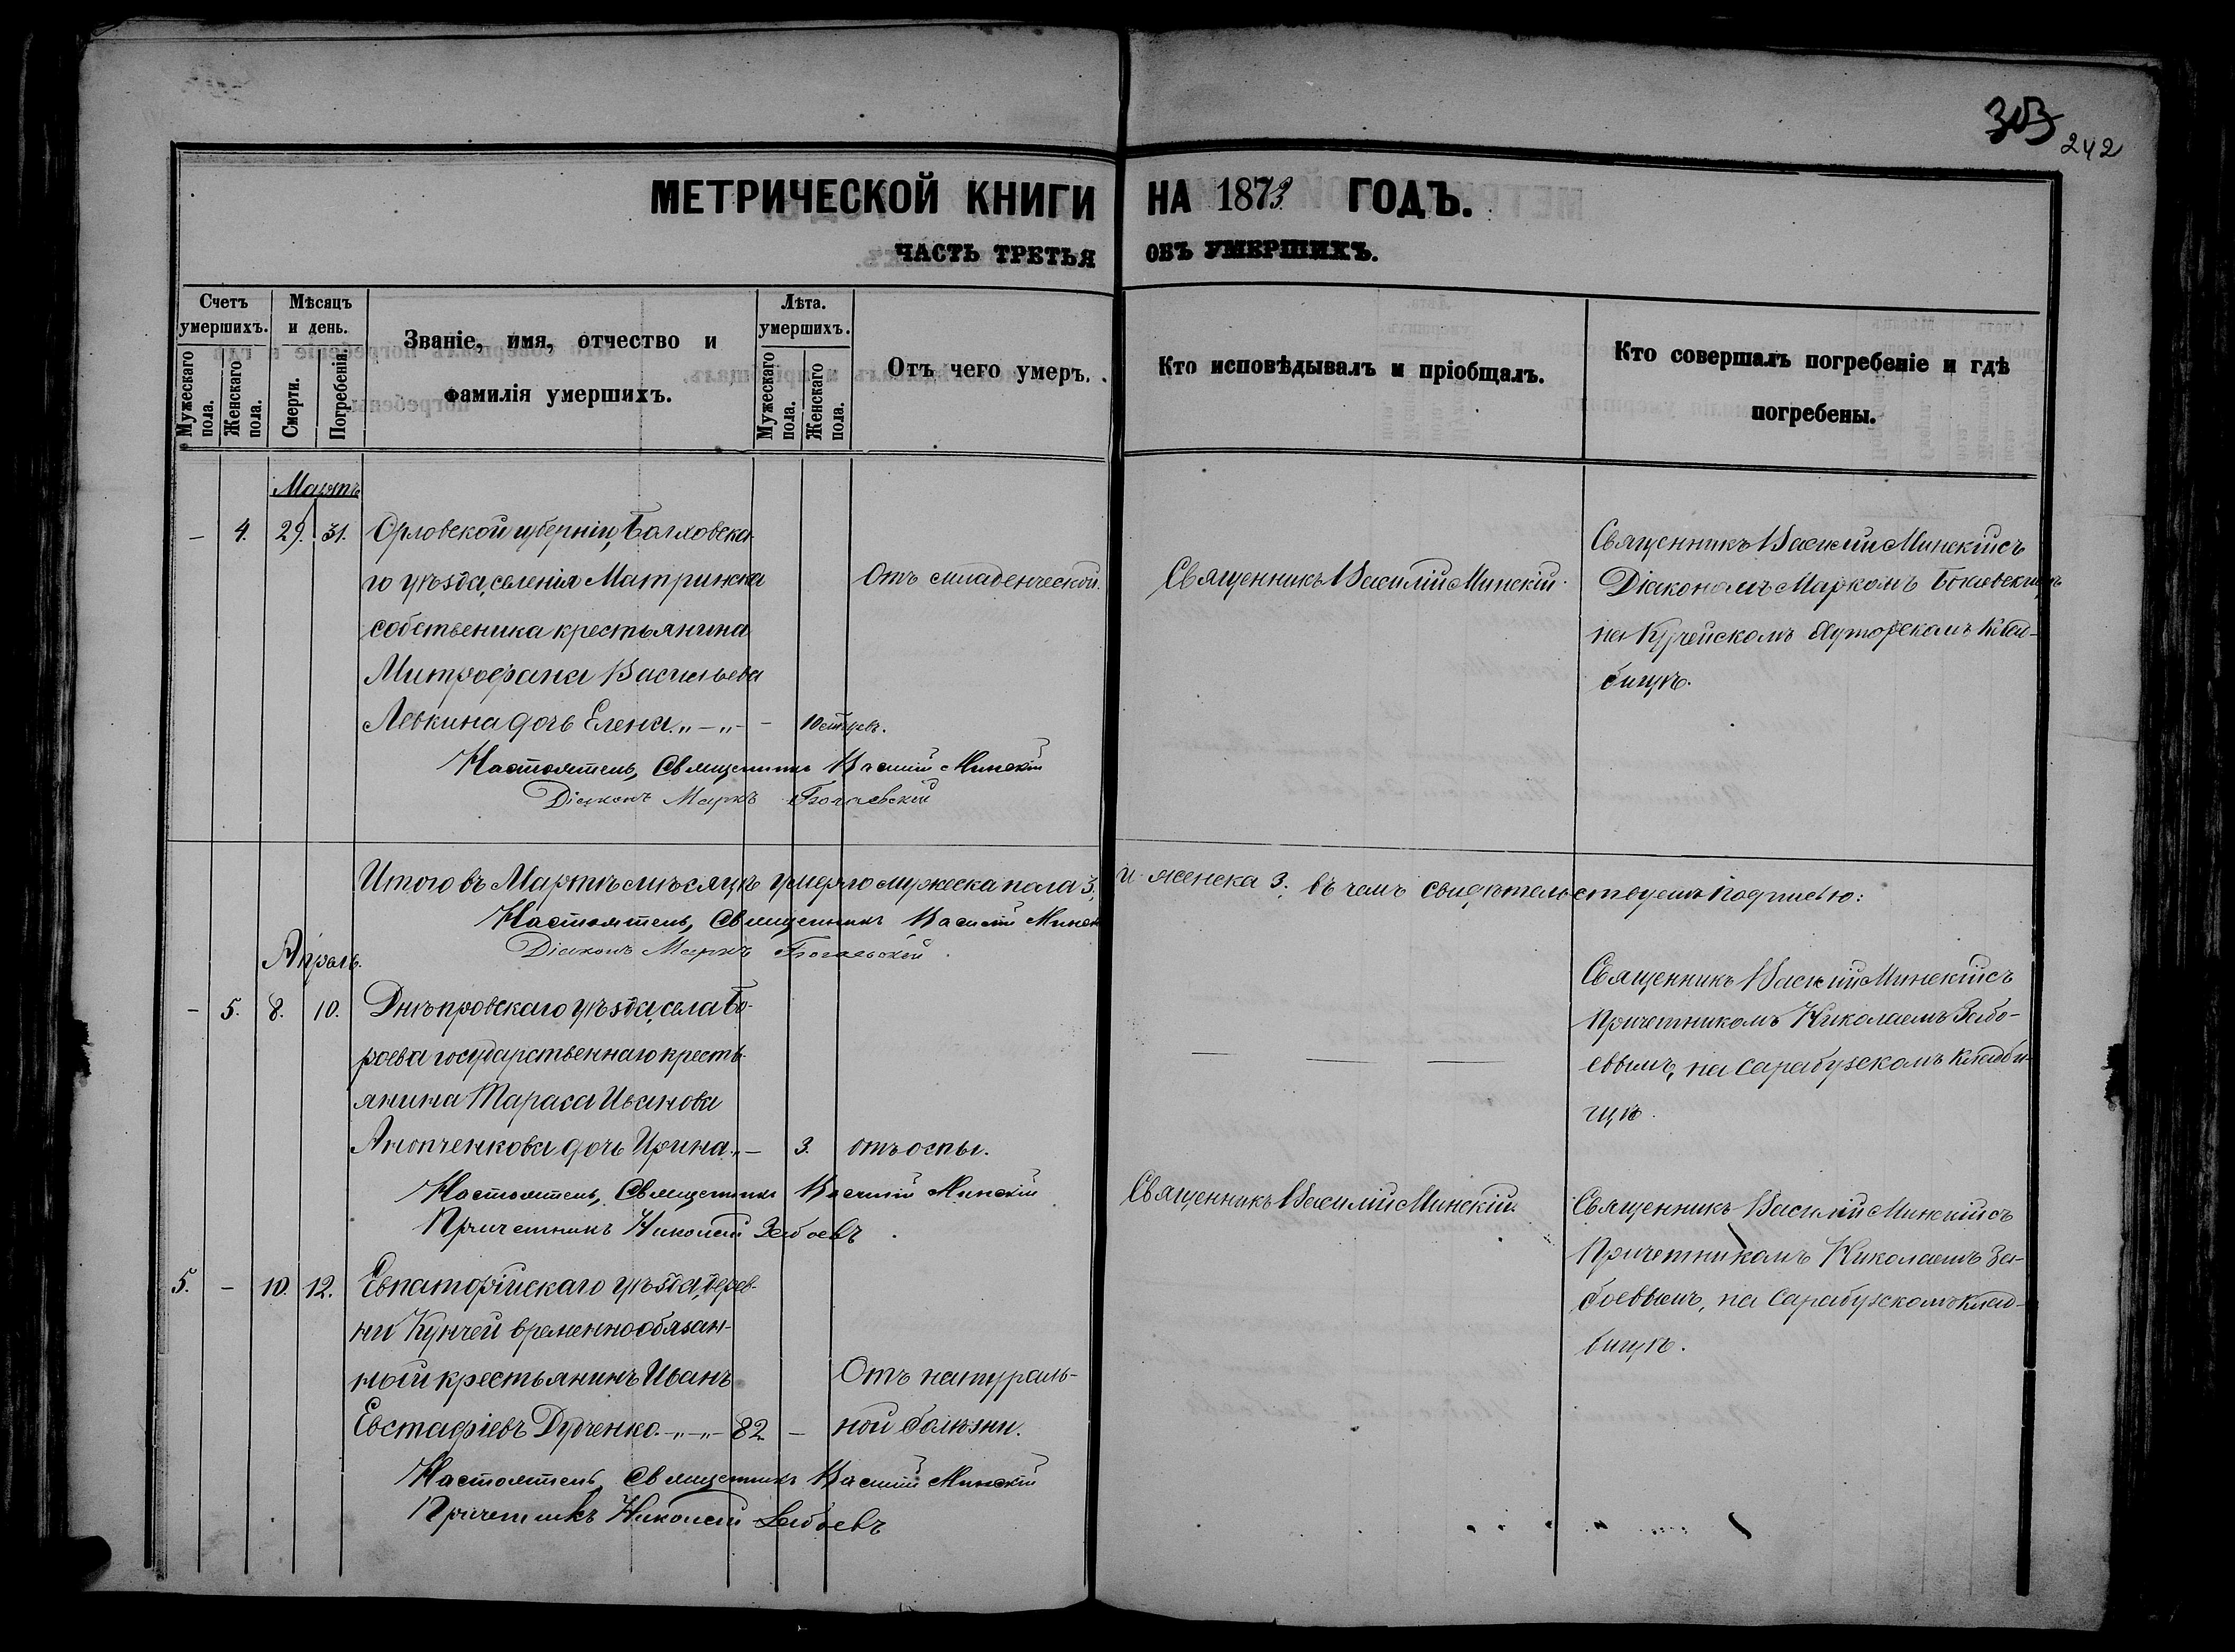 303
242
МЕТРИЧЕСКОЙ КНИГИ НА 1873 ГОДЪ.
ЧАСТЬ ТРЕТЬЯ ОБЪ УМЕРШИХЪ.
Счетъ умершихъ.
Мужескаго пола.
Женскаго пола.
Мѣсяцъ и день.
Смерти.
Погребенія.
Званіе, имя, отчество и
фамилія умершихъ.
Лѣта. умершихъ.
Мужескаго пола.
Женскаго пола.
Отъ чего умеръ.
Кто исповѣдывалъ и пріобщалъ.
Кто совершалъ погребеніе и гдѣ
погребены.
Мартъ
– 4. 29. 31. Орловской губерніи, Болховска-
го уѣзда, селенія
собственика крестьянина
Митрофана Васильева
Левкина дочь Елена „–„– –
Отъ младенческой.
Священникъ Василій Минскій.
Священникъ Василій Минскій съ
Діакономъ Маркомъ
на хуторскомъ клад-
бищѣ.
Настоятель, Священникъ Василій Минскій
Діаконъ Маркъ
Итого въ Мартѣ мѣсяцѣ умерло мужеска пола 3, и женска 3. въ чемъ свидѣтельствуемъ подписью:
Настоятель, Священникъ Василій
Діаконъ Маркъ
Апрѣль.
– 5. 8. 10. Днѣпровскаго уѣзда, села
государственнаго кресть-
янина Тараса Иванова
дочь Ирина „– 3. отъ оспы.
Священникъ Василій Минскій съ
Причетникомъ Николаемъ Забо-
евымъ, на Сарабузскомъ кладби-
щѣ.
Настоятель, Священникъ Василій Минскій
Причетникъ Николай Забоевъ
5. – 10. 12. Евпаторійскаго уѣзда, дерев-
ни Кунчей временнообязан-
ный крестьянинъ Иванъ
Евстафіевъ Дудченко. –„–„– 82. –
Отъ натураль-
ной болѣзни.
Священникъ Василій Минскій.
Священникъ Василій Минскій съ
Причетникомъ Николаемъ За-
боевымъ, на Сарабузскомъ клад-
бищѣ.
Настоятель, Священникъ Василій Минскій
Причетникъ Николай Забоевъ